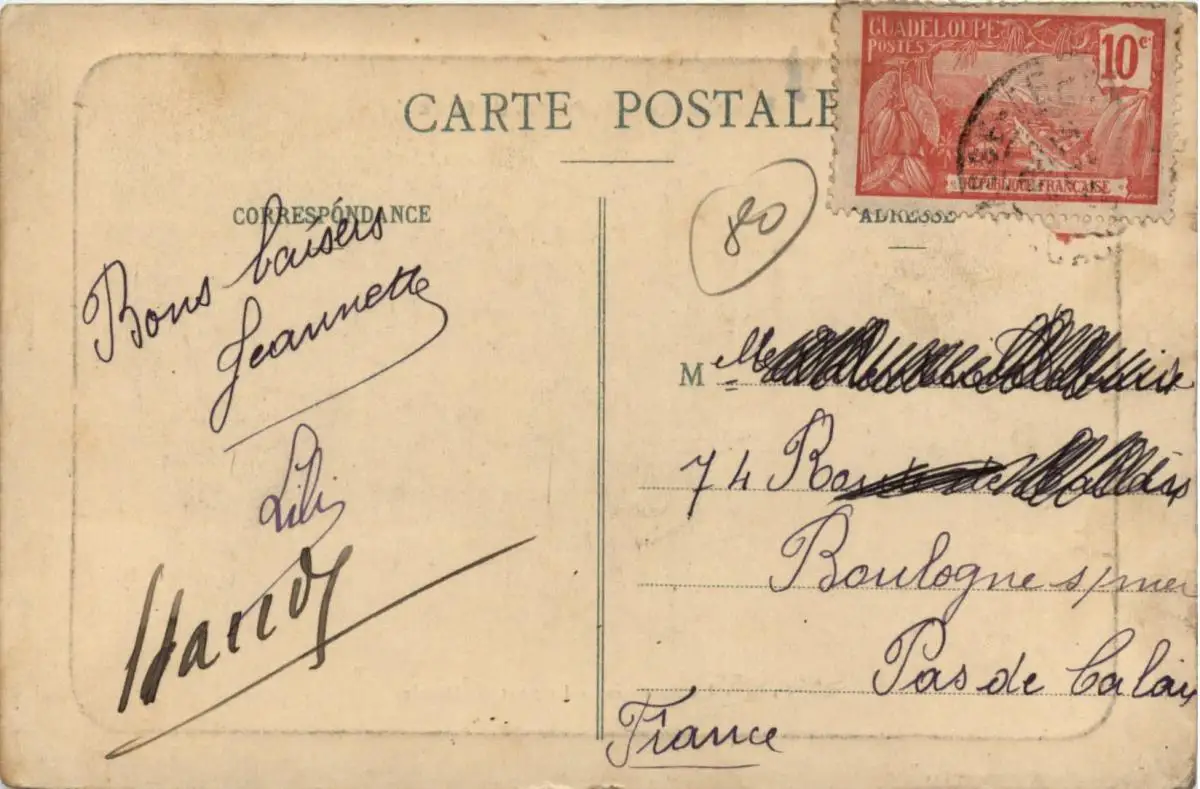 GUADELOUPE
POSTES
10c
RÉPUBLIQUE FRANÇAISE
CARTE POSTALE
CORRESPONDANCE
ADRESSE
80
Bons baisers
Jeannette
Lili
M
74 R
Boulogne s/mer
Pas de Calais
France